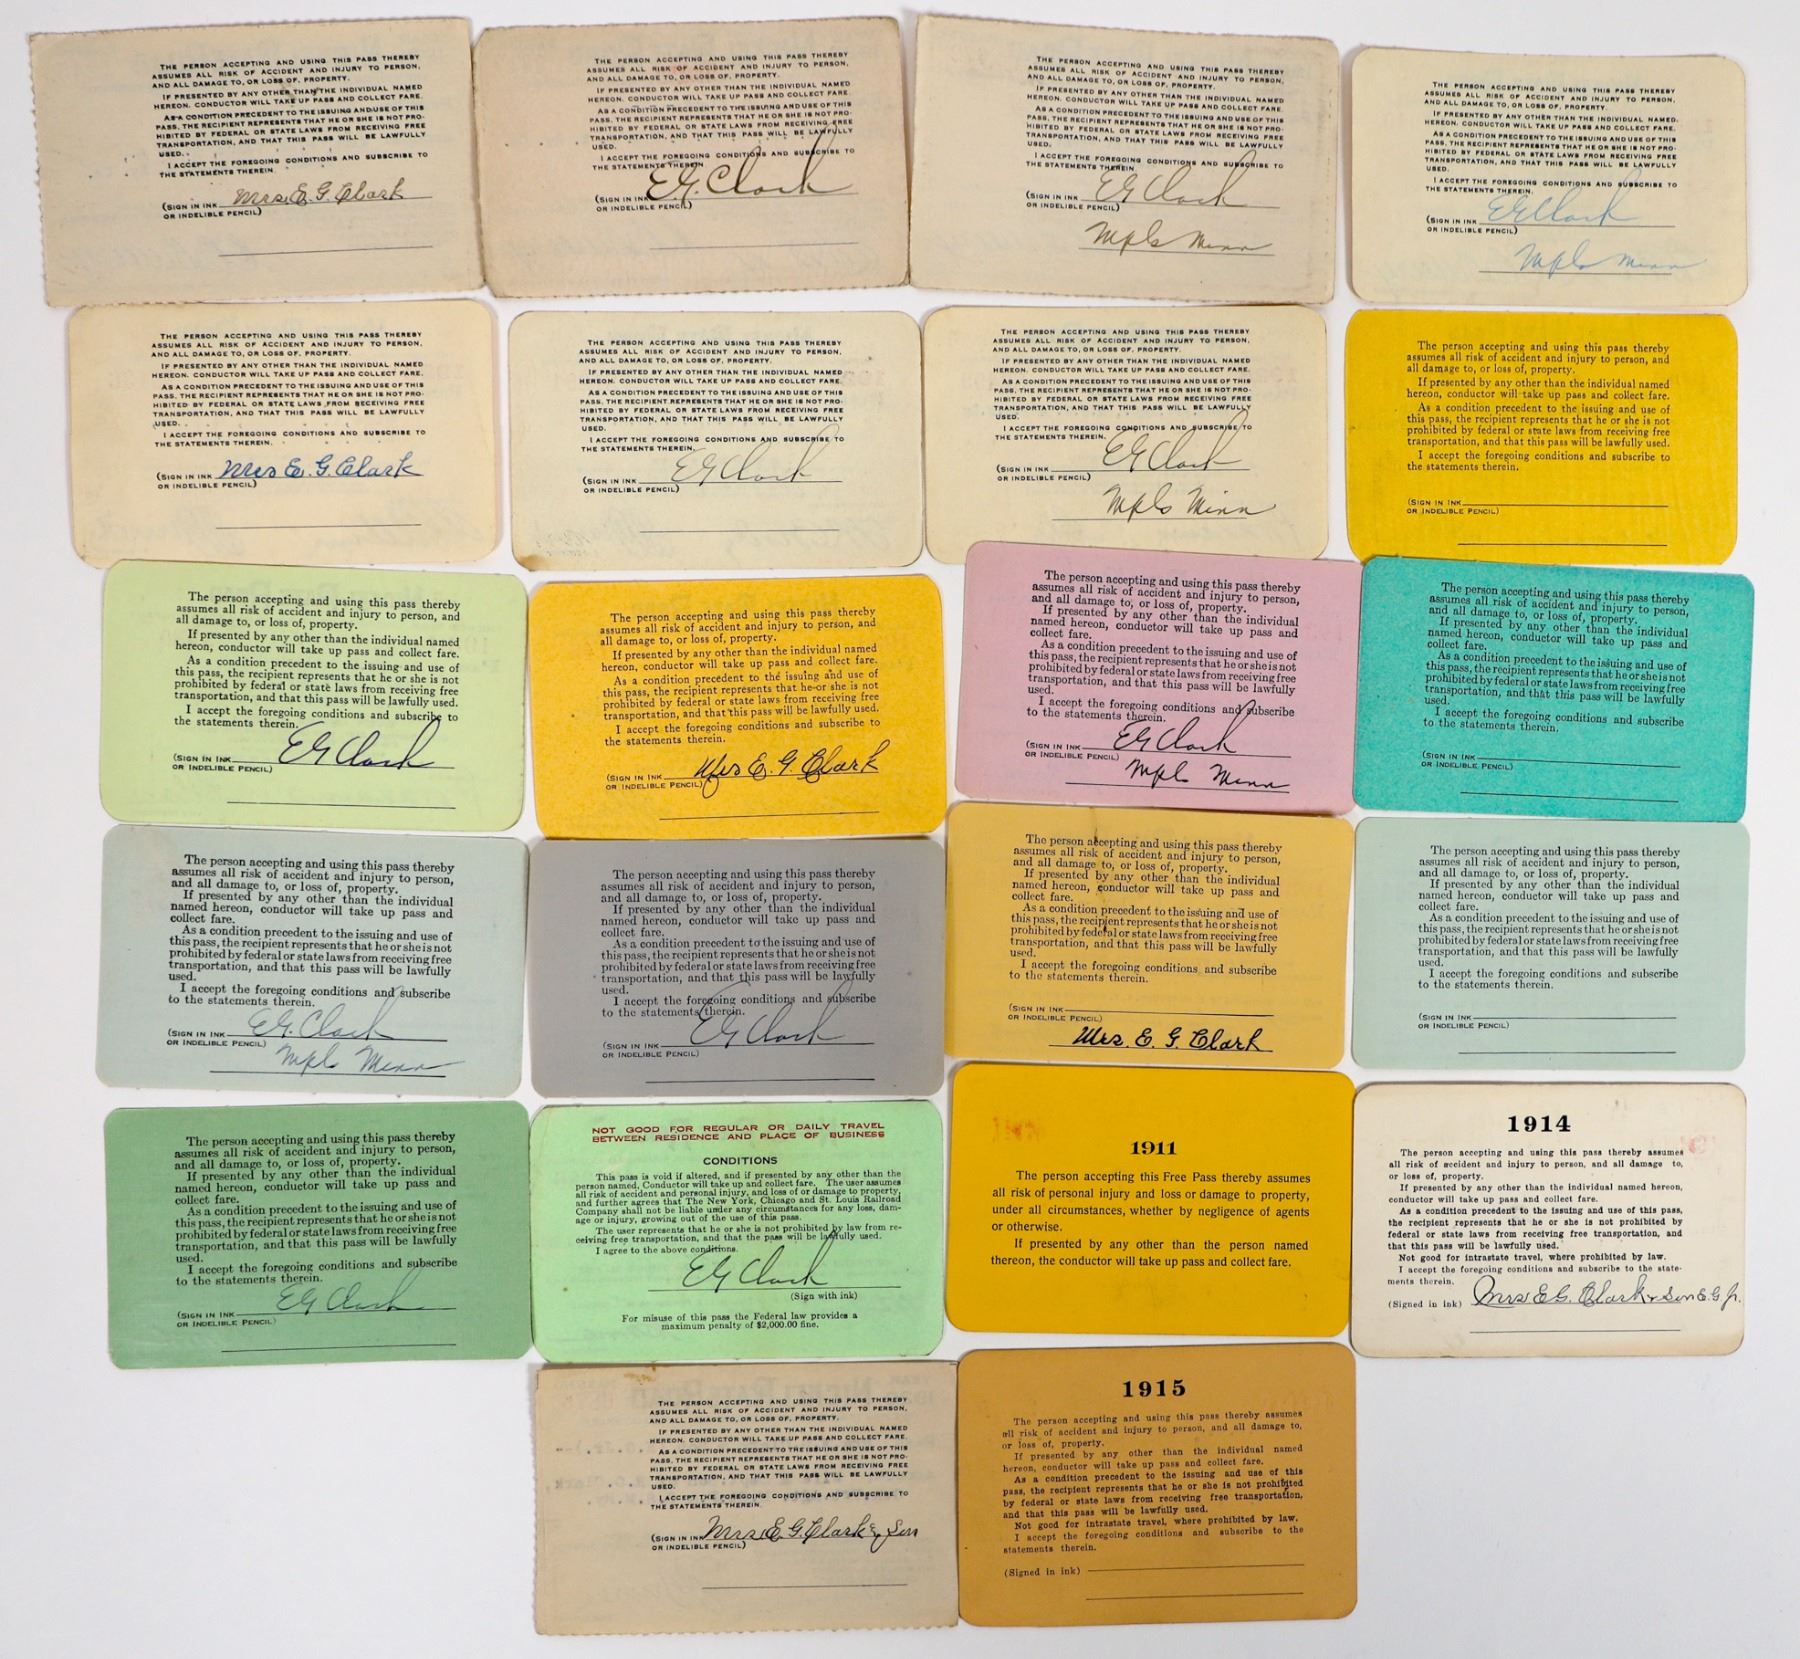 THE PERSON ACCEPTING AND USING THIS PASS THEREBY
ASSUMES ALL RISK OF ACCIDENT AND INJURY TO PERSON,
AND ALL DAMAGE TO, OR LOSS OF, PROPERTY.
IF PRESENTED BY ANY OTHER THAN THE INDIVIDUAL NAMED
HEREON. CONDUCTOR WILL TAKE UP PASS AND COLLECT FARE.
AS A CONDITION PRECEDENT TO THE ISSUING AND USE OF THIS
PASS, THE RECIPIENT REPRESENTS THAT HE OR SHE IS NOT PRO-
HIBITED BY FEDERAL OR STATE LAWS FROM RECEIVING FREE
TRANSPORTATION, AND THAT THIS PASS WILL BE LAWFULLY
USED.
I ACCEPT THE FOREGOING CONDITIONS AND SUBSCRIBE TO
THE STATEMENTS THEREIN.
(SIGN IN INK Mrs. E. G. Clark
OR INDELIBLE PENCIL)
THE PERSON ACCEPTING AND USING THIS PASS THEREBY
ASSUMES ALL RISK OF ACCIDENT AND INJURY TO PERSON,
AND ALL DAMAGE TO, OR LOSS OF, PROPERTY.
IF PRESENTED BY ANY OTHER THAN THE INDIVIDUAL NAMED
HEREON. CONDUCTOR WILL TAKE UP PASS AND COLLECT FARE.
AS A CONDITION PRECEDENT TO THE ISSUING AND USE OF THIS
PASS, THE RECIPIENT REPRESENTS THAT HE OR SHE IS NOT PRO-
HIBITED BY FEDERAL OR STATE LAWS FROM RECEIVING FREE
TRANSPORTATION, AND THAT THIS PASS WILL BE LAWFULLY
USED.
I ACCEPT THE FOREGOING CONDITIONS AND SUBSCRIBE TO
THE STATEMENTS THEREIN.
(SIGN IN INK E.G. Clark
OR INDELIBLE PENCIL)
THE PERSON ACCEPTING AND USING THIS PASS THEREBY
ASSUMES ALL RISK OF ACCIDENT AND INJURY TO PERSON,
AND ALL DAMAGE TO, OR LOSS OF, PROPERTY.
IF PRESENTED BY ANY OTHER THAN THE INDIVIDUAL NAMED
HEREON. CONDUCTOR WILL TAKE UP PASS AND COLLECT FARE.
AS A CONDITION PRECEDENT TO THE ISSUING AND USE OF THIS
PASS, THE RECIPIENT REPRESENTS THAT HE OR SHE IS NOT PRO-
HIBITED BY FEDERAL OR STATE LAWS FROM RECEIVING FREE
TRANSPORTATION, AND THAT THIS PASS WILL BE LAWFULLY
USED.
I ACCEPT THE FOREGOING CONDITIONS AND SUBSCRIBE TO
THE STATEMENTS THEREIN.
(SIGN IN INK EG Clark
OR INDELIBLE PENCIL)
Mpls Minn
THE PERSON ACCEPTING AND USING THIS PASS THEREBY
ASSUMES ALL RISK OF ACCIDENT AND INJURY TO PERSON,
AND ALL DAMAGE TO, OR LOSS OF, PROPERTY.
IF PRESENTED BY ANY OTHER THAN THE INDIVIDUAL NAMED
HEREON. CONDUCTOR WILL TAKE UP PASS AND COLLECT FARE.
AS A CONDITION PRECEDENT TO THE ISSUING AND USE OF THIS
PASS, THE RECIPIENT REPRESENTS THAT HE OR SHE IS NOT PRO-
HIBITED BY FEDERAL OR STATE LAWS FROM RECEIVING FREE
TRANSPORTATION, AND THAT THIS PASS WILL BE LAWFULLY
USED.
I ACCEPT THE FOREGOING CONDITIONS AND SUBSCRIBE TO
THE STATEMENTS THEREIN.
(SIGN IN INK EG Clark
OR INDELIBLE PENCIL)
Mpls Minn
THE PERSON ACCEPTING AND USING THIS PASS THEREBY
ASSUMES ALL RISK OF ACCIDENT AND INJURY TO PERSON,
AND ALL DAMAGE TO, OR LOSS OF, PROPERTY.
IF PRESENTED BY ANY OTHER THAN THE INDIVIDUAL NAMED
HEREON. CONDUCTOR WILL TAKE UP PASS AND COLLECT FARE.
AS A CONDITION PRECEDENT TO THE ISSUING AND USE OF THIS
PASS, THE RECIPIENT REPRESENTS THAT HE OR SHE IS NOT PRO-
HIBITED BY FEDERAL OR STATE LAWS FROM RECEIVING FREE
TRANSPORTATION, AND THAT THIS PASS WILL BE LAWFULLY
USED.
I ACCEPT THE FOREGOING CONDITIONS AND SUBSCRIBE TO
THE STATEMENTS THEREIN.
(SIGN IN INK Mrs E. G. Clark
OR INDELIBLE PENCIL)
THE PERSON ACCEPTING AND USING THIS PASS THEREBY
ASSUMES ALL RISK OF ACCIDENT AND INJURY TO PERSON,
AND ALL DAMAGE TO, OR LOSS OF, PROPERTY.
IF PRESENTED BY ANY OTHER THAN THE INDIVIDUAL NAMED
HEREON. CONDUCTOR WILL TAKE UP PASS AND COLLECT FARE.
AS A CONDITION PRECEDENT TO THE ISSUING AND USE OF THIS
PASS, THE RECIPIENT REPRESENTS THAT HE OR SHE IS NOT PRO-
HIBITED BY FEDERAL OR STATE LAWS FROM RECEIVING FREE
TRANSPORTATION, AND THAT THIS PASS WILL BE LAWFULLY
USED.
I ACCEPT THE FOREGOING CONDITIONS AND SUBSCRIBE TO
THE STATEMENTS THEREIN.
(SIGN IN INK EG Clark
OR INDELIBLE PENCIL)
THE PERSON ACCEPTING AND USING THIS PASS THEREBY
ASSUMES ALL RISK OF ACCIDENT AND INJURY TO PERSON,
AND ALL DAMAGE TO, OR LOSS OF, PROPERTY.
IF PRESENTED BY ANY OTHER THAN THE INDIVIDUAL NAMED
HEREON. CONDUCTOR WILL TAKE UP PASS AND COLLECT FARE.
AS A CONDITION PRECEDENT TO THE ISSUING AND USE OF THIS
PASS, THE RECIPIENT REPRESENTS THAT HE OR SHE IS NOT PRO-
HIBITED BY FEDERAL OR STATE LAWS FROM RECEIVING FREE
TRANSPORTATION, AND THAT THIS PASS WILL BE LAWFULLY
USED.
I ACCEPT THE FOREGOING CONDITIONS AND SUBSCRIBE TO
THE STATEMENTS THEREIN.
(SIGN IN INK EG Clark
OR INDELIBLE PENCIL)
Mpls Minn
The person accepting and using this pass thereby
assumes all risk of accident and injury to person, and
all damage to, or loss of, property.
If presented by any other than the individual named
hereon, conductor will take up pass and collect fare.
As a condition precedent to the issuing and use of
this pass, the recipient represents that he or she is not
prohibited by federal or state laws from receiving free
transportation, and that this pass will be lawfully used.
I accept the foregoing conditions and subscribe to
the statements therein.
(SIGN IN INK
OR INDELIBLE PENCIL)
The person accepting and using this pass thereby
assumes all risk of accident and injury to person, and
all damage to, or loss of, property.
If presented by any other than the individual named
hereon, conductor will take up pass and collect fare.
As a condition precedent to the issuing and use of
this pass, the recipient represents that he or she is not
prohibited by federal or state laws from receiving free
transportation, and that this pass will be lawfully used.
I accept the foregoing conditions and subscribe to
the statements therein.
(SIGN IN INK EG Clark
OR INDELIBLE PENCIL)
The person accepting and using this pass thereby
assumes all risk of accident and injury to person, and
all damage to, or loss of, property.
If presented by any other than the individual named
hereon, conductor will take up pass and collect fare.
As a condition precedent to the issuing and use of
this pass, the recipient represents that he or she is not
prohibited by federal or state laws from receiving free
transportation, and that this pass will be lawfully used.
I accept the foregoing conditions and subscribe to
the statements therein.
(SIGN IN INK Mrs E. G. Clark
OR INDELIBLE PENCIL)
The person accepting and using this pass thereby
assumes all risk of accident and injury to person,
and all damage to, or loss of, property.
If presented by any other than the individual
named hereon, conductor will take up pass and
collect fare.
As a condition precedent to the issuing and use of
this pass, the recipient represents that he or she is not
prohibited by federal or state laws from receiving free
transportation, and that this pass will be lawfully
used.
I accept the foregoing conditions and subscribe
to the statements therein.
(SIGN IN INK EG Clark
OR INDELIBLE PENCIL)
Mpls Minn
The person accepting and using this pass thereby
assumes all risk of accident and injury to person,
and all damage to, or loss of, property.
If presented by any other than the individual
named hereon, conductor will take up pass and
collect fare.
As a condition precedent to the issuing and use of
this pass, the recipient represents that he or she is not
prohibited by federal or state laws from receiving free
transportation, and that this pass will be lawfully
used.
I accept the foregoing conditions and subscribe
to the statements therein.
(SIGN IN INK
OR INDELIBLE PENCIL)
The person accepting and using this pass thereby
assumes all risk of accident and injury to person,
and all damage to, or loss of, property.
If presented by any other than the individual
named hereon, conductor will take up pass and
collect fare.
As a condition precedent to the issuing and use of
this pass, the recipient represents that he or she is not
prohibited by federal or state laws from receiving free
transportation, and that this pass will be lawfully
used.
I accept the foregoing conditions and subscribe
to the statements therein.
(SIGN IN INK EG. Clark
OR INDELIBLE PENCIL)
Mpls Minn
The person accepting and using this pass thereby
assumes all risk of accident and injury to person,
and all damage to, or loss of, property.
If presented by any other than the individual
named hereon, conductor will take up pass and
collect fare.
As a condition precedent to the issuing and use of
this pass, the recipient represents that he or she is not
prohibited by federal or state laws from receiving free
transportation, and that this pass will be lawfully
used.
I accept the foregoing conditions and subscribe
to the statements therein.
(SIGN IN INK EG Clark
OR INDELIBLE PENCIL)
The person accepting and using this pass thereby
assumes all risk of accident and injury to person,
and all damage to, or loss of, property.
If presented by any other than the individual
named hereon, conductor will take up pass and
collect fare.
As a condition precedent to the issuing and use of
this pass, the recipient represents that he or she is not
prohibited by federal or state laws from receiving free
transportation, and that this pass will be lawfully
used.
I accept the foregoing conditions and subscribe
to the statements therein.
(SIGN IN INK
OR INDELIBLE PENCIL)
Mrs. E. G. Clark
The person accepting and using this pass thereby
assumes all risk of accident and injury to person,
and all damage to, or loss of, property.
If presented by any other than the individual
named hereon, conductor will take up pass and
collect fare.
As a condition precedent to the issuing and use of
this pass, the recipient represents that he or she is not
prohibited by federal or state laws from receiving free
transportation, and that this pass will be lawfully
used.
I accept the foregoing conditions and subscribe
to the statements therein.
(SIGN IN INK
OR INDELIBLE PENCIL)
The person accepting and using this pass thereby
assumes all risk of accident and injury to person,
and all damage to, or loss of, property.
If presented by any other than the individual
named hereon, conductor will take up pass and
collect fare.
As a condition precedent to the issuing and use of
this pass, the recipient represents that he or she is not
prohibited by federal or state laws from receiving free
transportation, and that this pass will be lawfully
used.
I accept the foregoing conditions and subscribe
to the statements therein.
(SIGN IN INK EG Clark
OR INDELIBLE PENCIL)
NOT GOOD FOR REGULAR OR DAILY TRAVEL
BETWEEN RESIDENCE AND PLACE OF BUSINESS
CONDITIONS
This pass is void if altered, and if presented by any other than the
person named, Conductor will take up and collect fare. The user assumes
all risk of accident and personal injury, and loss of or damage to property,
and further agrees that The New York, Chicago and St. Louis Railroad
Company shall not be liable under any circumstances for any loss, dam-
age or injury, growing out of the use of this pass.
The user represents that he or she is not prohibited by law from re-
ceiving free transportation, and that the pass will be lawfully used.
I agree to the above conditions.
EG Clark
(Sign with ink)
For misuse of this pass the Federal law provides a
maximum penalty of $2,000.00 fine.
1911
The person accepting this Free Pass thereby assumes
all risk of personal injury and loss or damage to property,
under all circumstances, whether by negligence of agents
or otherwise.
If presented by any other than the person named
thereon, the conductor will take up pass and collect fare.
1914
The person accepting and using this pass thereby assumes
all risk of accident and injury to person, and all damage to,
or loss of, property.
If presented by any other than the individual named hereon,
conductor will take up pass and collect fare.
As a condition precedent to the issuing and use of this pass,
the recipient represents that he or she is not prohibited by
federal or state laws from receiving free transportation, and
that this pass will be lawfully used.
Not good for intrastate travel, where prohibited by law.
I accept the foregoing conditions and subscribe to the state-
ments therein.
(Signed in ink) Mrs E.G. Clark & Son E.G Jr.
THE PERSON ACCEPTING AND USING THIS PASS THEREBY
ASSUMES ALL RISK OF ACCIDENT AND INJURY TO PERSON,
AND ALL DAMAGE TO, OR LOSS OF, PROPERTY.
IF PRESENTED BY ANY OTHER THAN THE INDIVIDUAL NAMED
HEREON. CONDUCTOR WILL TAKE UP PASS AND COLLECT FARE.
AS A CONDITION PRECEDENT TO THE ISSUING AND USE OF THIS
PASS, THE RECIPIENT REPRESENTS THAT HE OR SHE IS NOT PRO-
HIBITED BY FEDERAL OR STATE LAWS FROM RECEIVING FREE
TRANSPORTATION, AND THAT THIS PASS WILL BE LAWFULLY
USED.
I ACCEPT THE FOREGOING CONDITIONS AND SUBSCRIBE TO
THE STATEMENTS THEREIN.
(SIGN IN INK Mrs E. G. Clark & Son
OR INDELIBLE PENCIL)
1915
The person accepting and using this pass thereby assumes
all risk of accident and injury to person, and all damage to,
or loss of, property.
If presented by any other than the individual named
hereon, conductor will take up pass and collect fare.
As a condition precedent to the issuing and use of this
pass, the recipient represents that he or she is not prohibited
by federal or state laws from receiving free transportation,
and that this pass will be lawfully used.
Not good for intrastate travel, where prohibited by law.
I accept the foregoing conditions and subscribe to the
statements therein.
(Signed in ink)